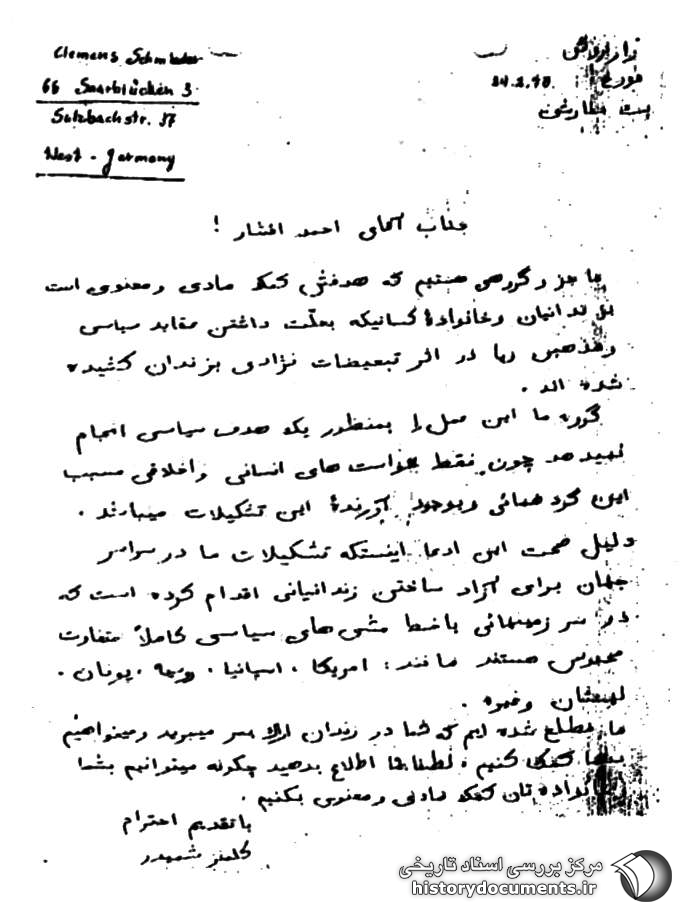 Clemens Schmieder
66 Saarbrücken 3
Sulzbachstr. 37
West - Germany
مورخ 24.2.70
پست سفارشی
جناب آقای احمد افشار !
ما جزو گروهی هستیم که هدفش کمک مادی و معنوی است
بزندانیان و خانوادهٔ کسانیکه بعلّت داشتن عقاید سیاسی
و مذهبی و یا در اثر تبعیضات نژادی بزندان کشیده
شده اند .
گروه ما این عمل را بمنظور یک هدف سیاسی انجام
نمیدهد چون فقط خواست های انسانی و اخلاقی مسبب
این گردهمائی و بوجود آورندهٔ این تشکیلات میباشند .
دلیل صحت این ادعا اینستکه تشکیلات ما در سراسر
جهان برای آزاد ساختن زندانیانی اقدام کرده است که
در سرزمینهائی با خط مشی های سیاسی کاملاً متفاوت
محبوس هستند مانند : امریکا ، اسپانیا ، روسیه ، یونان ،
لهستان و غیره .
ما مطلع شده ایم که شما در زندان اراک بسر میبرید و میخواهیم
بشما کمک کنیم ، لطفا بما اطلاع بدهید چگونه میتوانیم بشما
و خانواده تان کمک مادی و معنوی بکنیم .
با تقدیم احترام
کلمنز شمیدر
مرکز بررسی اسناد تاریخی
historydocuments.ir